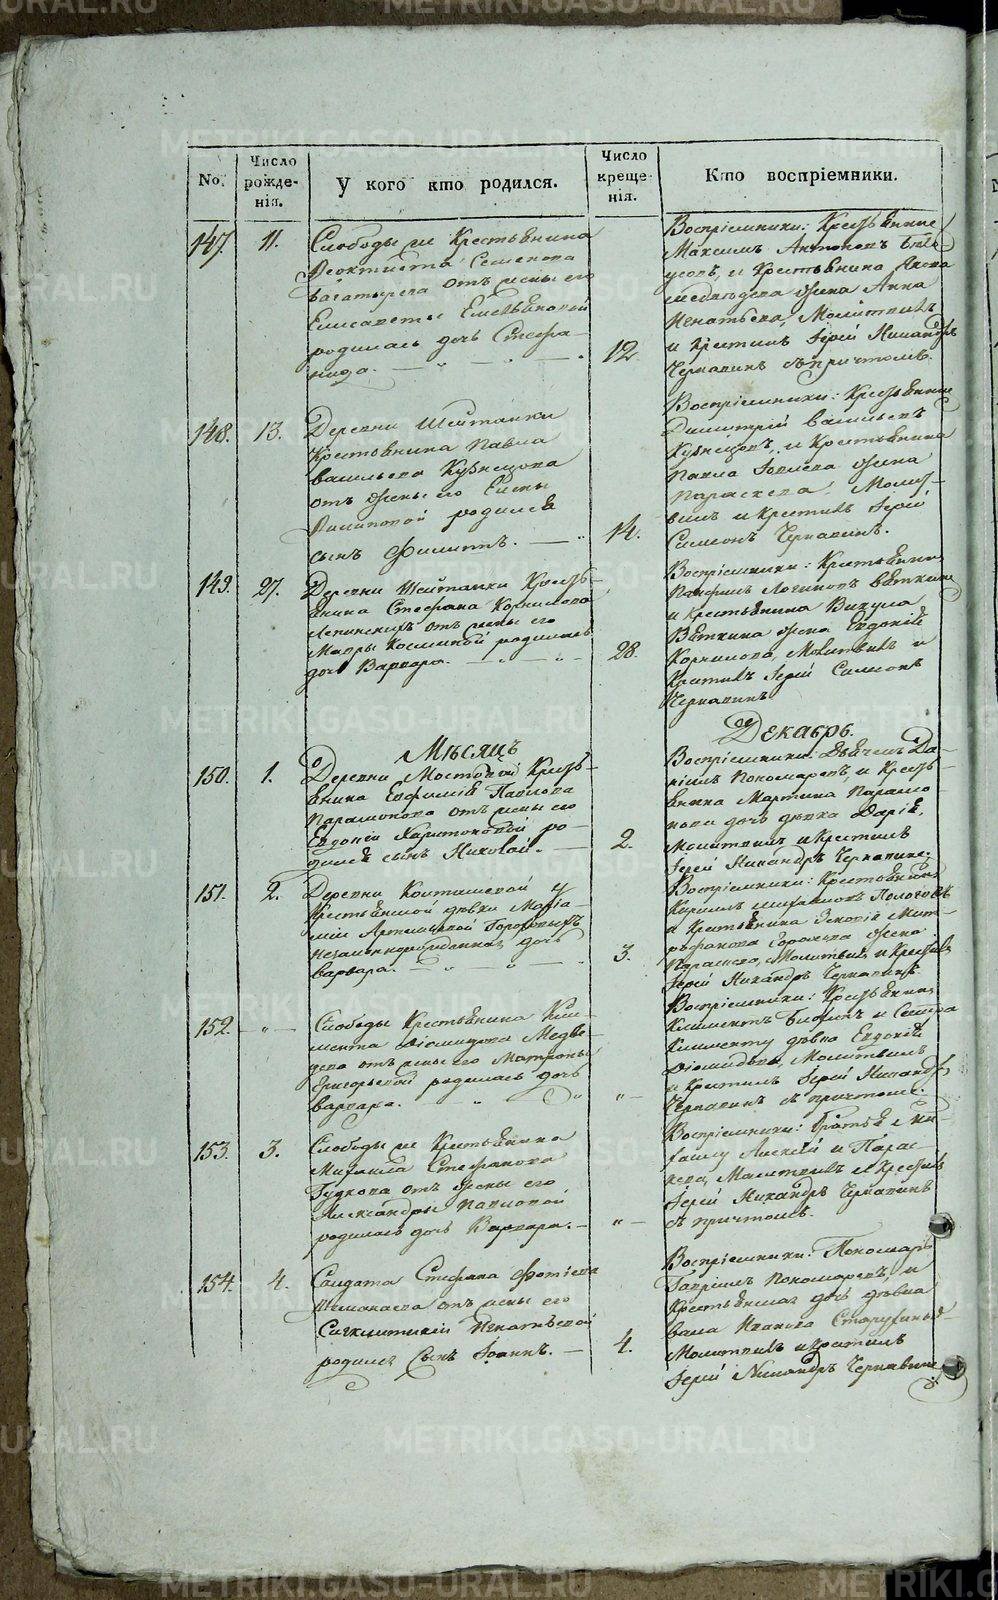 No.
Число рожденія.
У кого кто родился.
Число крещенія.
Кто воспріемники.
147.
11.
Слободы се Крестьянина
Феоктиста Семенова
Багатырева отъ жены его
Елисаветы Емельяновой
родилась дочь Стефа-
нида.
12.
Воспріемники: Крестьянине
Максимъ Антоновъ
и Крестьянина Якова
Медведева жена Анна
Игнатьева, Молитвилъ
и Крестилъ Іерей Никандръ
Чернавинъ съ причтомъ.
148.
13.
Деревни Шейтанки
Крестьянина Павла
Васильева Кузнецова
отъ жены его Елены
Филиповой родился
сынъ Филиппъ.
14.
Воспріемники: Крестьянине
Димитрій Васильевъ
Кузнецовъ, и Крестьянина
Павла жена
Параскева, Молит-
вилъ и Крестилъ Іерей
Симеонъ Чернавинъ.
149.
27.
Деревни Шейтанки Кресть-
янина Стефана Корнилова
отъ жены его
Мавры Космовой родилась
дочь Варвара.
28.
Воспріемники: Крестьянинъ
Логиновъ Вяткинъ
и Крестьянина Викула
Вяткина жена Евдокія
Корнилова, Молитвилъ и
Крестилъ Іерей Симеонъ
Чернавинъ
Мѣсяцъ
Декабрь.
150.
1.
Деревни Мостовой Кресть-
янина Евфимія Павлова
Парамонова отъ жены его
Евдокіи Харитоновой ро-
дился сынъ Николай.
2.
Воспріемники: Да-
ніилъ Пономаревъ, и Кресть-
янина Мартина Парамо-
нова дочь дѣвка Дарія,
Молитвилъ и Крестилъ
Іерей Никандръ Чернавинъ.
151.
2.
Деревни Коптяшевой у
Крестьянской дѣвки Маріа-
міи Артемьевой
незаконнорожденная дочь
Варвара.
3.
Воспріемники: Крестьянинъ
Кирилъ Михайловъ
и Крестьянина
жена
Параскева, Молитвилъ и Крестилъ
Іерей Никандръ Чернавинъ.
152.
"
Слободы Крестьянина Кли-
мента Діомидова Медвѣ-
дева отъ жены его Матроны
Григорьевой родилась дочь
Варвара.
"
Воспріемники: Крестьянинъ
Климентъ и Сестра
Клименту дѣвка Евдокія
Діомидова, Молитвилъ
и Крестилъ Іерей Никандръ
Чернавинъ съ причтомъ.
153.
3.
Слободы се Крестьянина
Михаила Стефанова
Гудкова отъ жены его
Александры Павловой
родилась дочь Варвара.
"
Воспріемники: Братья Ми-
хаилу Алексій и Парас-
кева, Молитвилъ и Крестилъ
Іерей Никандръ Чернавинъ
съ причтомъ.
154.
4.
Солдата Стефана Фотіева
отъ жены его
Синклитикіи Игнатьевой
родился Сынъ Іоаннъ.
4.
Воспріемники: Пономарь
Гавріилъ Пономаревъ, и
Крестьянская дочь дѣвка
Молитвилъ и крестилъ
Іерей Никандръ Чернавинъ
METRIKI.GASO-URAL.RU